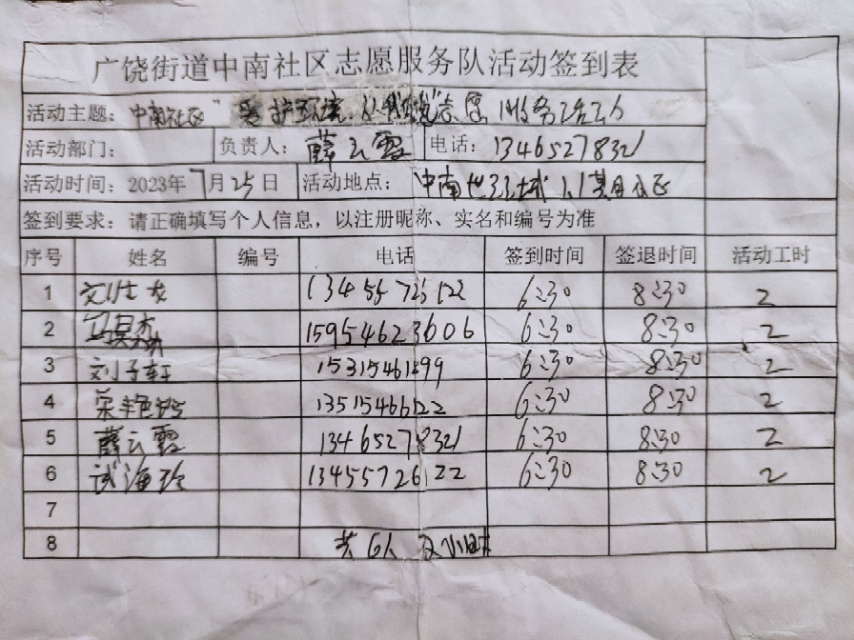 广饶街道中南社区志愿服务队活动签到表
活动主题: 中南社区"爱护环境 志愿服务活动
活动部门: 负责人: 薛云霞 电话: 13465278321
活动时间: 2023年 7月25日 活动地点: 中南世纪城
签到要求: 请正确填写个人信息，以注册昵称、实名和编号为准
序号 姓名 编号 电话 签到时间 签退时间 活动工时
1 6:30 8:30 2
2 15954623606 6:30 8:30 2
3 刘子轩 15315461899 6:30 8:30 2
4 荣艳玲 13515466122 6:30 8:30 2
5 薛云霞 13465278321 6:30 8:30 2
6 试海玲 13455726122 6:30 8:30 2
7
8 共6人 小时